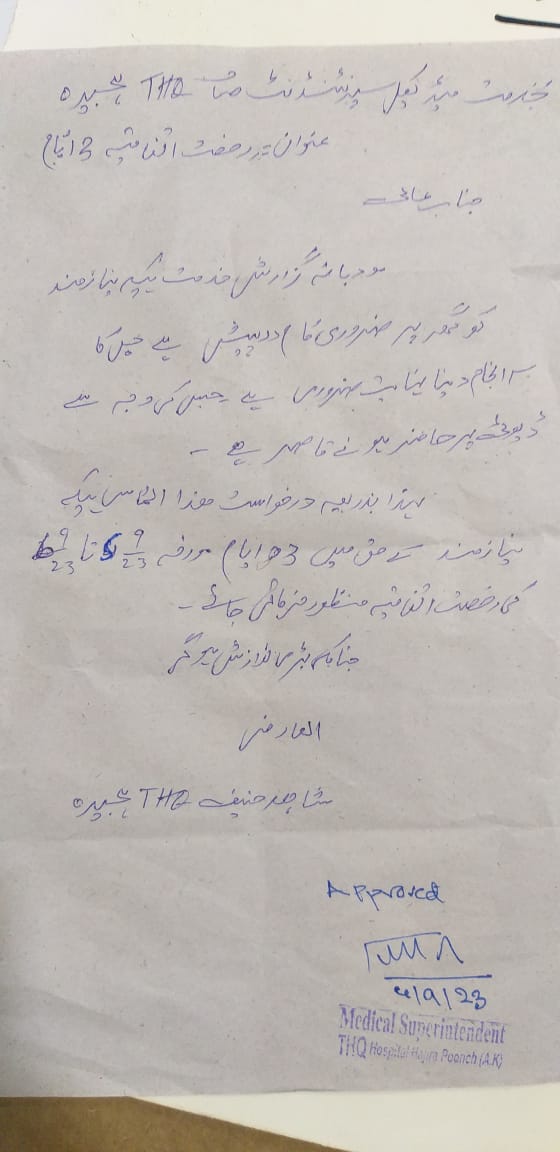 بخدمت میڈیکل سپرنٹنڈنٹ صاحب THQ ہجیرہ
عنوان :- رخصت اتفاقیہ 3 ایام
جناب عالی
مودبانہ گزارش خدمت ہیکہ نیازمند
کو گھر پر ضروری کام درپیش ہے جس کا
سرانجام دینا نہایت ضروری ہے۔ جس کی وجہ سے
ڈیوٹی پر حاضر ہونے قاصر ہے -
لہذا بذریعہ درخواست ھذا التماس ہیکہ
نیازمند کے حق میں 3 ایام مورخہ 9/23 تا 9/23
کی رخصت اتفاقیہ منظور فرمائی جائے -
جنابکی بڑی نوازش ہوگی
العارض
شاہد حنیف THQ ہجیرہ
Approved
4/9/23
Medical Superintendent
THQ Hospital Hajira Poonch (A.K)